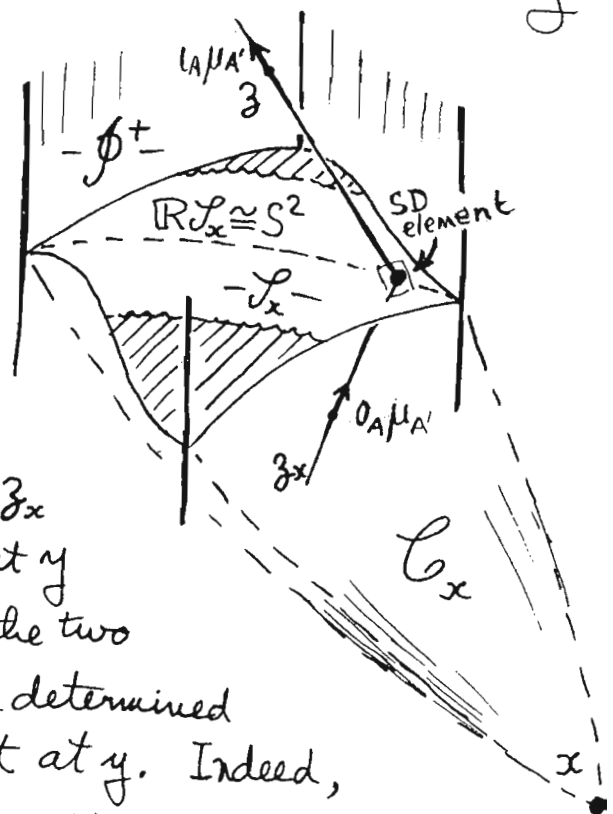 ι_A μ_A'
Z
-𝒥⁺-
ℝ𝒮ₓ≅S²
SD
element
-𝒮ₓ-
o_A μ_A'
Zₓ
Zₓ
𝒞ₓ
et y
the two
determined
t at y. Indeed,
x